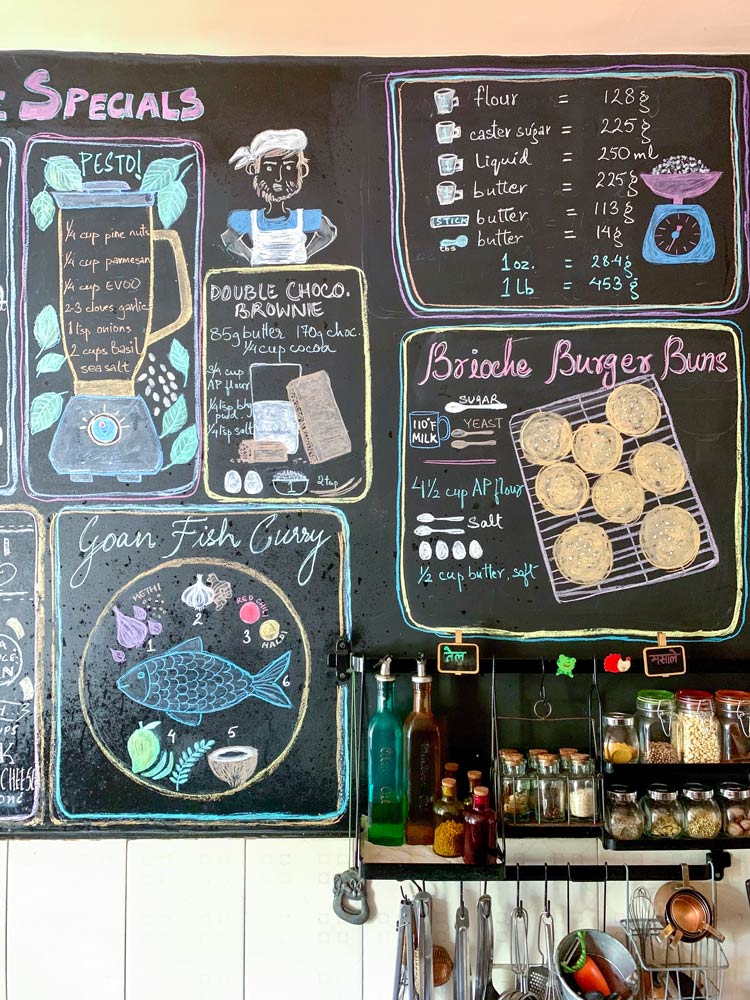 SPECIALS
PESTO!
1/4 cup pine nuts
1/4 cup parmesan
1/4 cup EVOO
2-3 cloves garlic
1 tsp onions
2 cups Basil
sea salt
DOUBLE CHOCO.
BROWNIE
85g butter 170g choc.
1/4 cup cocoa
3/4 cup
AP flour
1/4 tsp salt
1
flour = 128 g
caster sugar = 225 g
Liquid = 250 ml
butter = 225 g
STICK butter = 113 g
tbs butter = 14 g
1 oz. = 28.4 g
1 Lb = 453 g
Brioche Burger Buns
SUGAR
110°F
MILK
YEAST
4 1/2 cup AP flour
Salt
1/2 cup butter, soft
Goan Fish Curry
METHI
1
2
RED CHILI
3
HALDI
4
5
6
CHEESE
तेल
मसाले